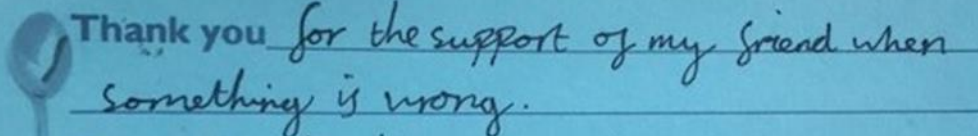 Thank you for the support of my friend when
something is wrong.